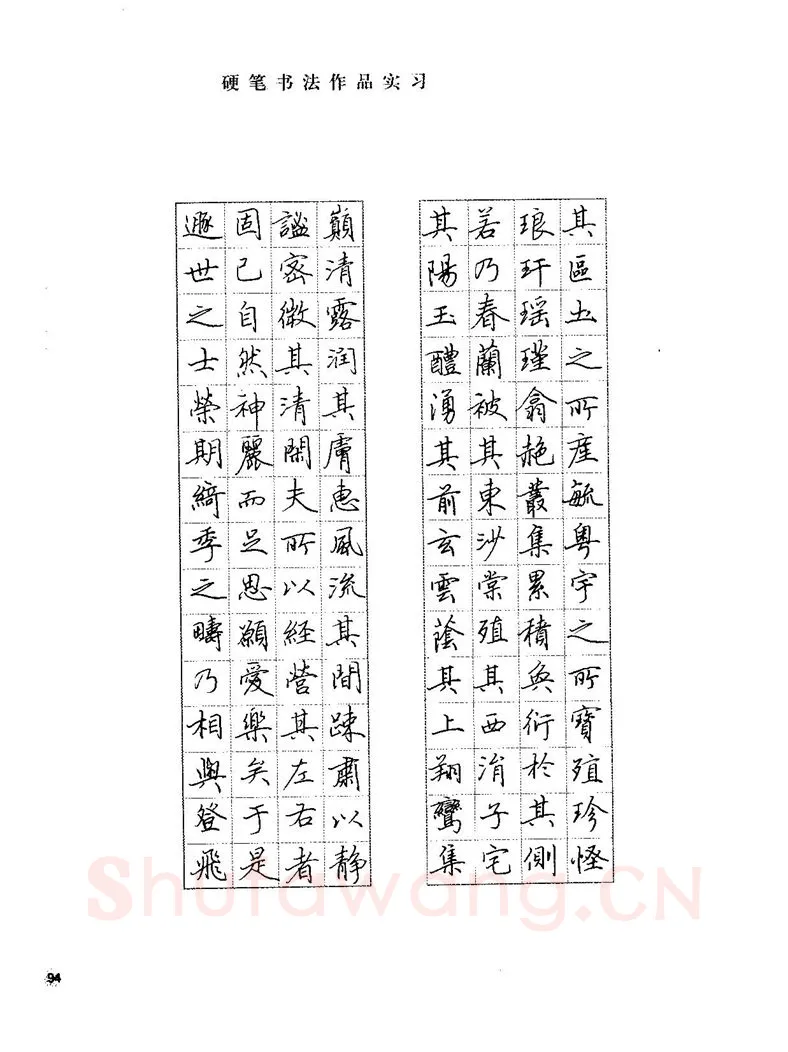 硬笔书法作品实习
其區土之所產毓粤宇之所寶殖珍怪
琅玕瑶瑾翕赩叢集累積奐衍於其側
若乃春蘭被其東沙棠殖其西涓子宅
其陽玉醴湧其前玄雲蔭其上翔鸞集
巔清露润其膚惠風流其間竦肅以静
謐密微其清閑夫所以経營其左右者
固已自然神麗而足思願愛樂矣于是
遯世之士榮期綺季之疇乃相與登飛
Shufawang.CN
94